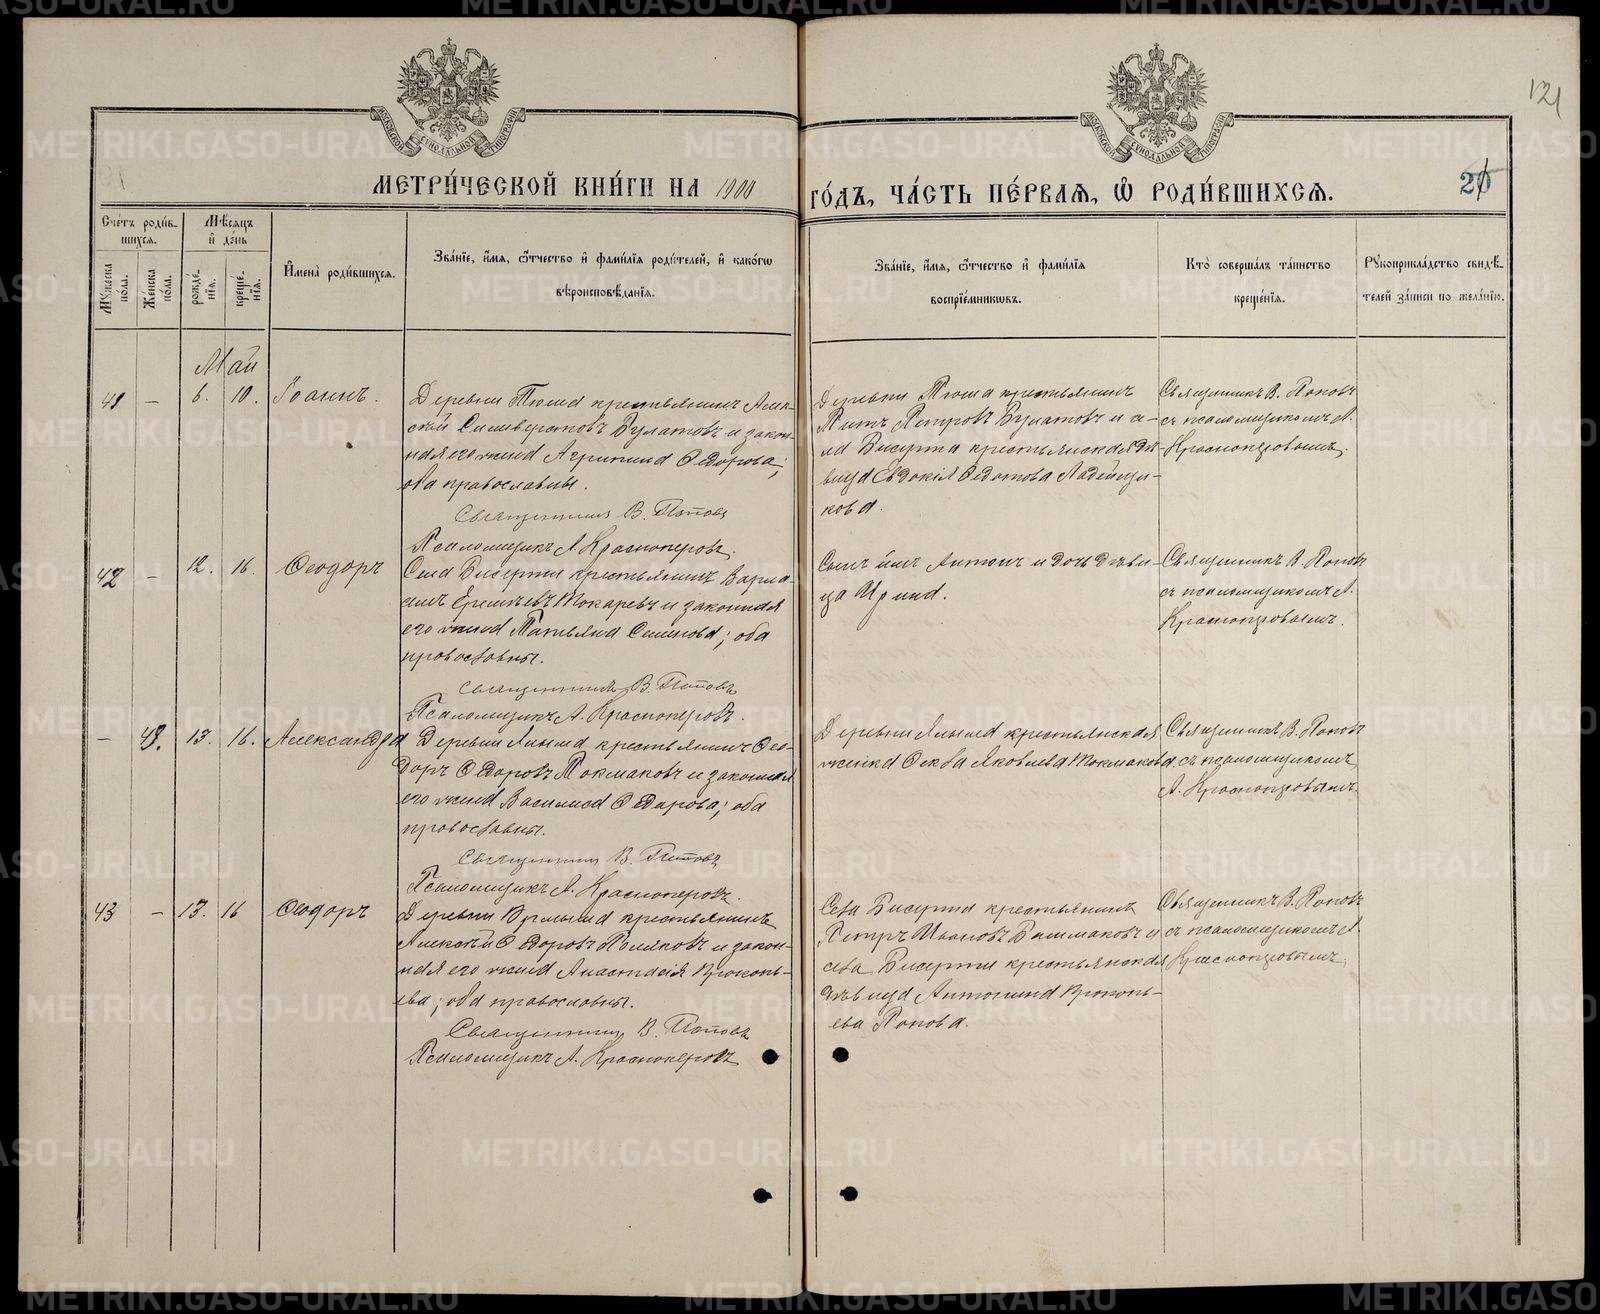 МЕТРИЧЕСКОЙ КНИГИ НА 1900 ГОДЪ, ЧАСТЬ ПЕРВАЯ, Ѿ РОДИВШИХСЯ.
121
Счетъ родив-
шихся.
Мѣсяцъ
и день
Мужеска
пола.
Женска
пола.
рожде-
нія.
креще-
нія.
Имена родившихся.
Званіе, имя, ѿтчество и фамилія родителей, и какогѡ
вѣроисповѣданія.
Званіе, имя, ѿтчество и фамилія
воспріемникѡвъ.
Кто совершалъ таинство
крещенія.
Рукоприкладство свидѣ-
телей записи по желанію.
Май
41 — 6. 10. Іоаннъ.
Деревни Тюша крестьянинъ Алек-
сѣй Силиверстовъ Булатовъ и закон-
ная его жена Агрипина Ѳедорова;
оба православны.
Священникъ В. Поповъ
Псаломщикъ А. Красноперовъ.
Деревни Тюша крестьянинъ
Титъ Петровъ Булатовъ и се-
ла Бисерти крестьянская дѣ-
вица Евдокія Ѳедотова Ладейщи-
кова.
Священникъ В. Поповъ
съ псаломщикомъ А.
Красноперовымъ.
42 — 12. 16. Ѳеодоръ
Села Бисерти крестьянинъ Варла-
амъ Еремѣевъ Токаревъ и законная
его жена Татьяна Семенова; оба
православны.
Священникъ В. Поповъ
Псаломщикъ А. Красноперовъ.
Сынъ ихъ Антонъ и дочь дѣви-
ца Ирина.
Священникъ В. Поповъ
съ псаломщикомъ А.
Красноперовымъ.
— 48. 13. 16. Александра
Деревни крестьянинъ Ѳео-
доръ Ѳедоровъ Токмаковъ и законная
его жена Василиса Ѳедорова; оба
православны.
Священникъ В. Поповъ
Псаломщикъ А. Красноперовъ.
Деревни крестьянская
женка Ѳекла Яковлева Токмакова
Священникъ В. Поповъ
съ псаломщикомъ
А. Красноперовымъ.
43 — 13. 16 Ѳеодоръ
Деревни крестьянинъ
Алексѣй Ѳедоровъ Поляковъ и закон-
ная его жена Анастасія Прокопь-
ева; оба православны.
Священникъ В. Поповъ
Псаломщикъ А. Красноперовъ
Села Бисерти крестьянинъ
Петръ Ивановъ Башмаковъ и
села Бисерти крестьянская
дѣвица Антонина Прокопь-
ева Попова.
Священникъ В. Поповъ
съ псаломщикомъ А.
Красноперовымъ.
METRIKI.GASO-URAL.RU